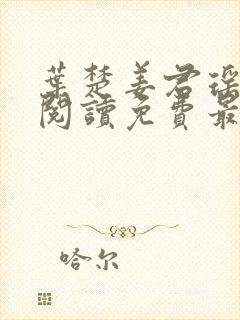 葉楚姜君瑶
閱讀免費最
哈尔